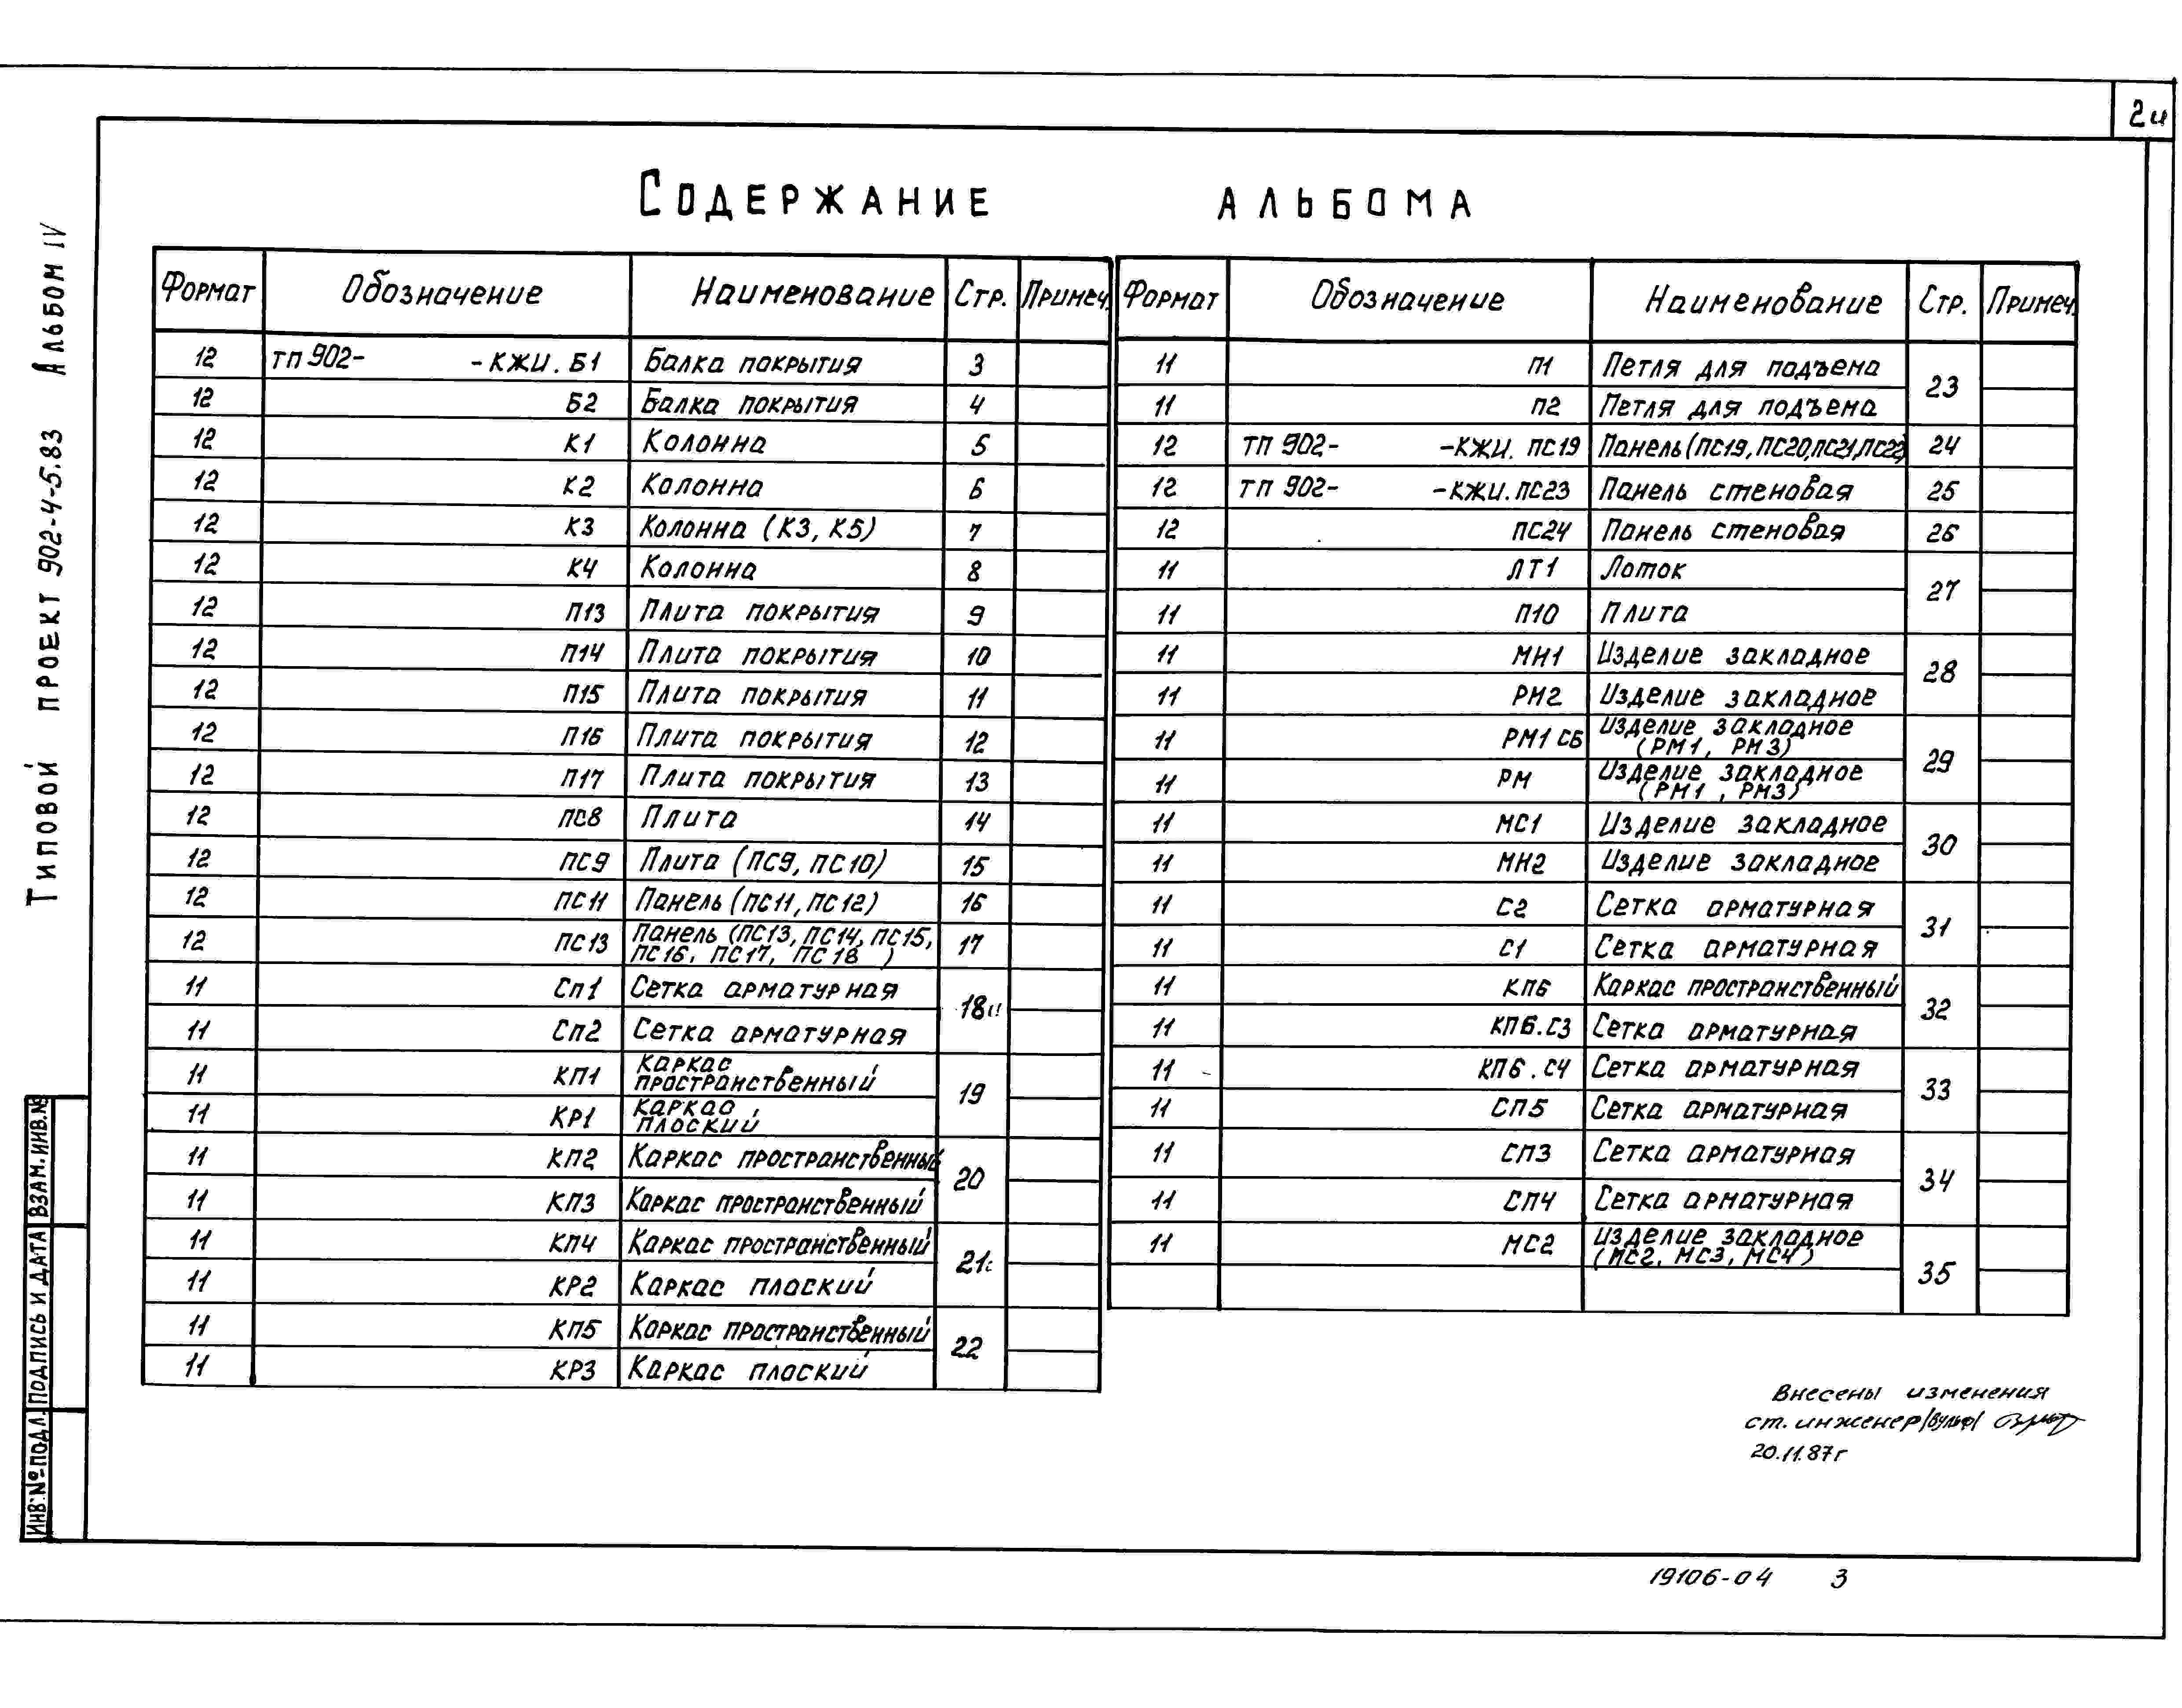 2и
Типовой проект 902-4-5.83 Альбом IV
Содержание альбома
Формат Обозначение Наименование Стр. Примеч.
12 ТП 902- -КЖИ.Б1 Балка покрытия 3
12 Б2 Балка покрытия 4
12 К1 Колонна 5
12 К2 Колонна 6
12 К3 Колонна (К3, К5) 7
12 К4 Колонна 8
12 П13 Плита покрытия 9
12 П14 Плита покрытия 10
12 П15 Плита покрытия 11
12 П16 Плита покрытия 12
12 П17 Плита покрытия 13
12 ПС8 Плита 14
12 ПС9 Плита (ПС9, ПС10) 15
12 ПС11 Панель (ПС11, ПС12) 16
12 ПС13 Панель (ПС13, ПС14, ПС15,
ПС16, ПС17, ПС18 ) 17
11 Сп1 Сетка арматурная 18и
11 Сп2 Сетка арматурная
11 КП1 Каркас
пространственный 19
11 КР1 Каркас
плоский
11 КП2 Каркас пространственный 20
11 КП3 Каркас пространственный
11 КП4 Каркас пространственный 21
11 КР2 Каркас плоский
11 КП5 Каркас пространственный 22
11 КР3 Каркас плоский
Формат Обозначение Наименование Стр. Примеч.
11 П1 Петля для подъема 23
11 П2 Петля для подъема
12 ТП 902- -КЖИ. ПС19 Панель (ПС19, ПС20, ПС21, ПС22) 24
12 ТП 902- -КЖИ.ПС23 Панель стеновая 25
12 ПС24 Панель стеновая 26
11 ЛТ1 Лоток 27
11 П10 Плита
11 МН1 Изделие закладное 28
11 РМ2 Изделие закладное
11 РМ1 СБ Изделие закладное
(РМ1, РМ3) 29
11 РМ Изделие закладное
(РМ1, РМ3)
11 МС1 Изделие закладное 30
11 МН2 Изделие закладное
11 С2 Сетка арматурная 31
11 С1 Сетка арматурная
11 КП6 Каркас пространственный 32
11 КП6.С3 Сетка арматурная
11 КП6.С4 Сетка арматурная 33
11 СП5 Сетка арматурная
11 СП3 Сетка арматурная 34
11 СП4 Сетка арматурная
11 МС2 Изделие закладное
(МС2, МС3, МС4) 35
Внесены изменения
ст. инженер /Вульф/
20.11.87г
Инв.№подл. Подпись и дата Взам.инв.№
19106-04 3